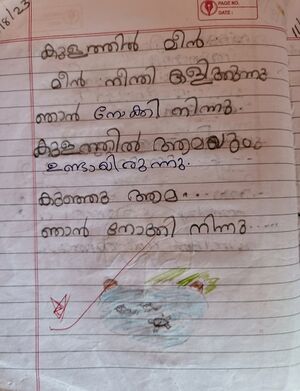 PAGE NO.
DATE:
/8/23
കുളത്തിൽ മീൻ
മീൻ നീന്തി കളിക്കുന്നു
ഞാൻ നോക്കി നിന്നു.
കുളത്തിൽ ആമയും
ഉണ്ടായിരുന്നു.
കുഞ്ഞു ആമ....
ഞാൻ നോക്കി നിന്നു...